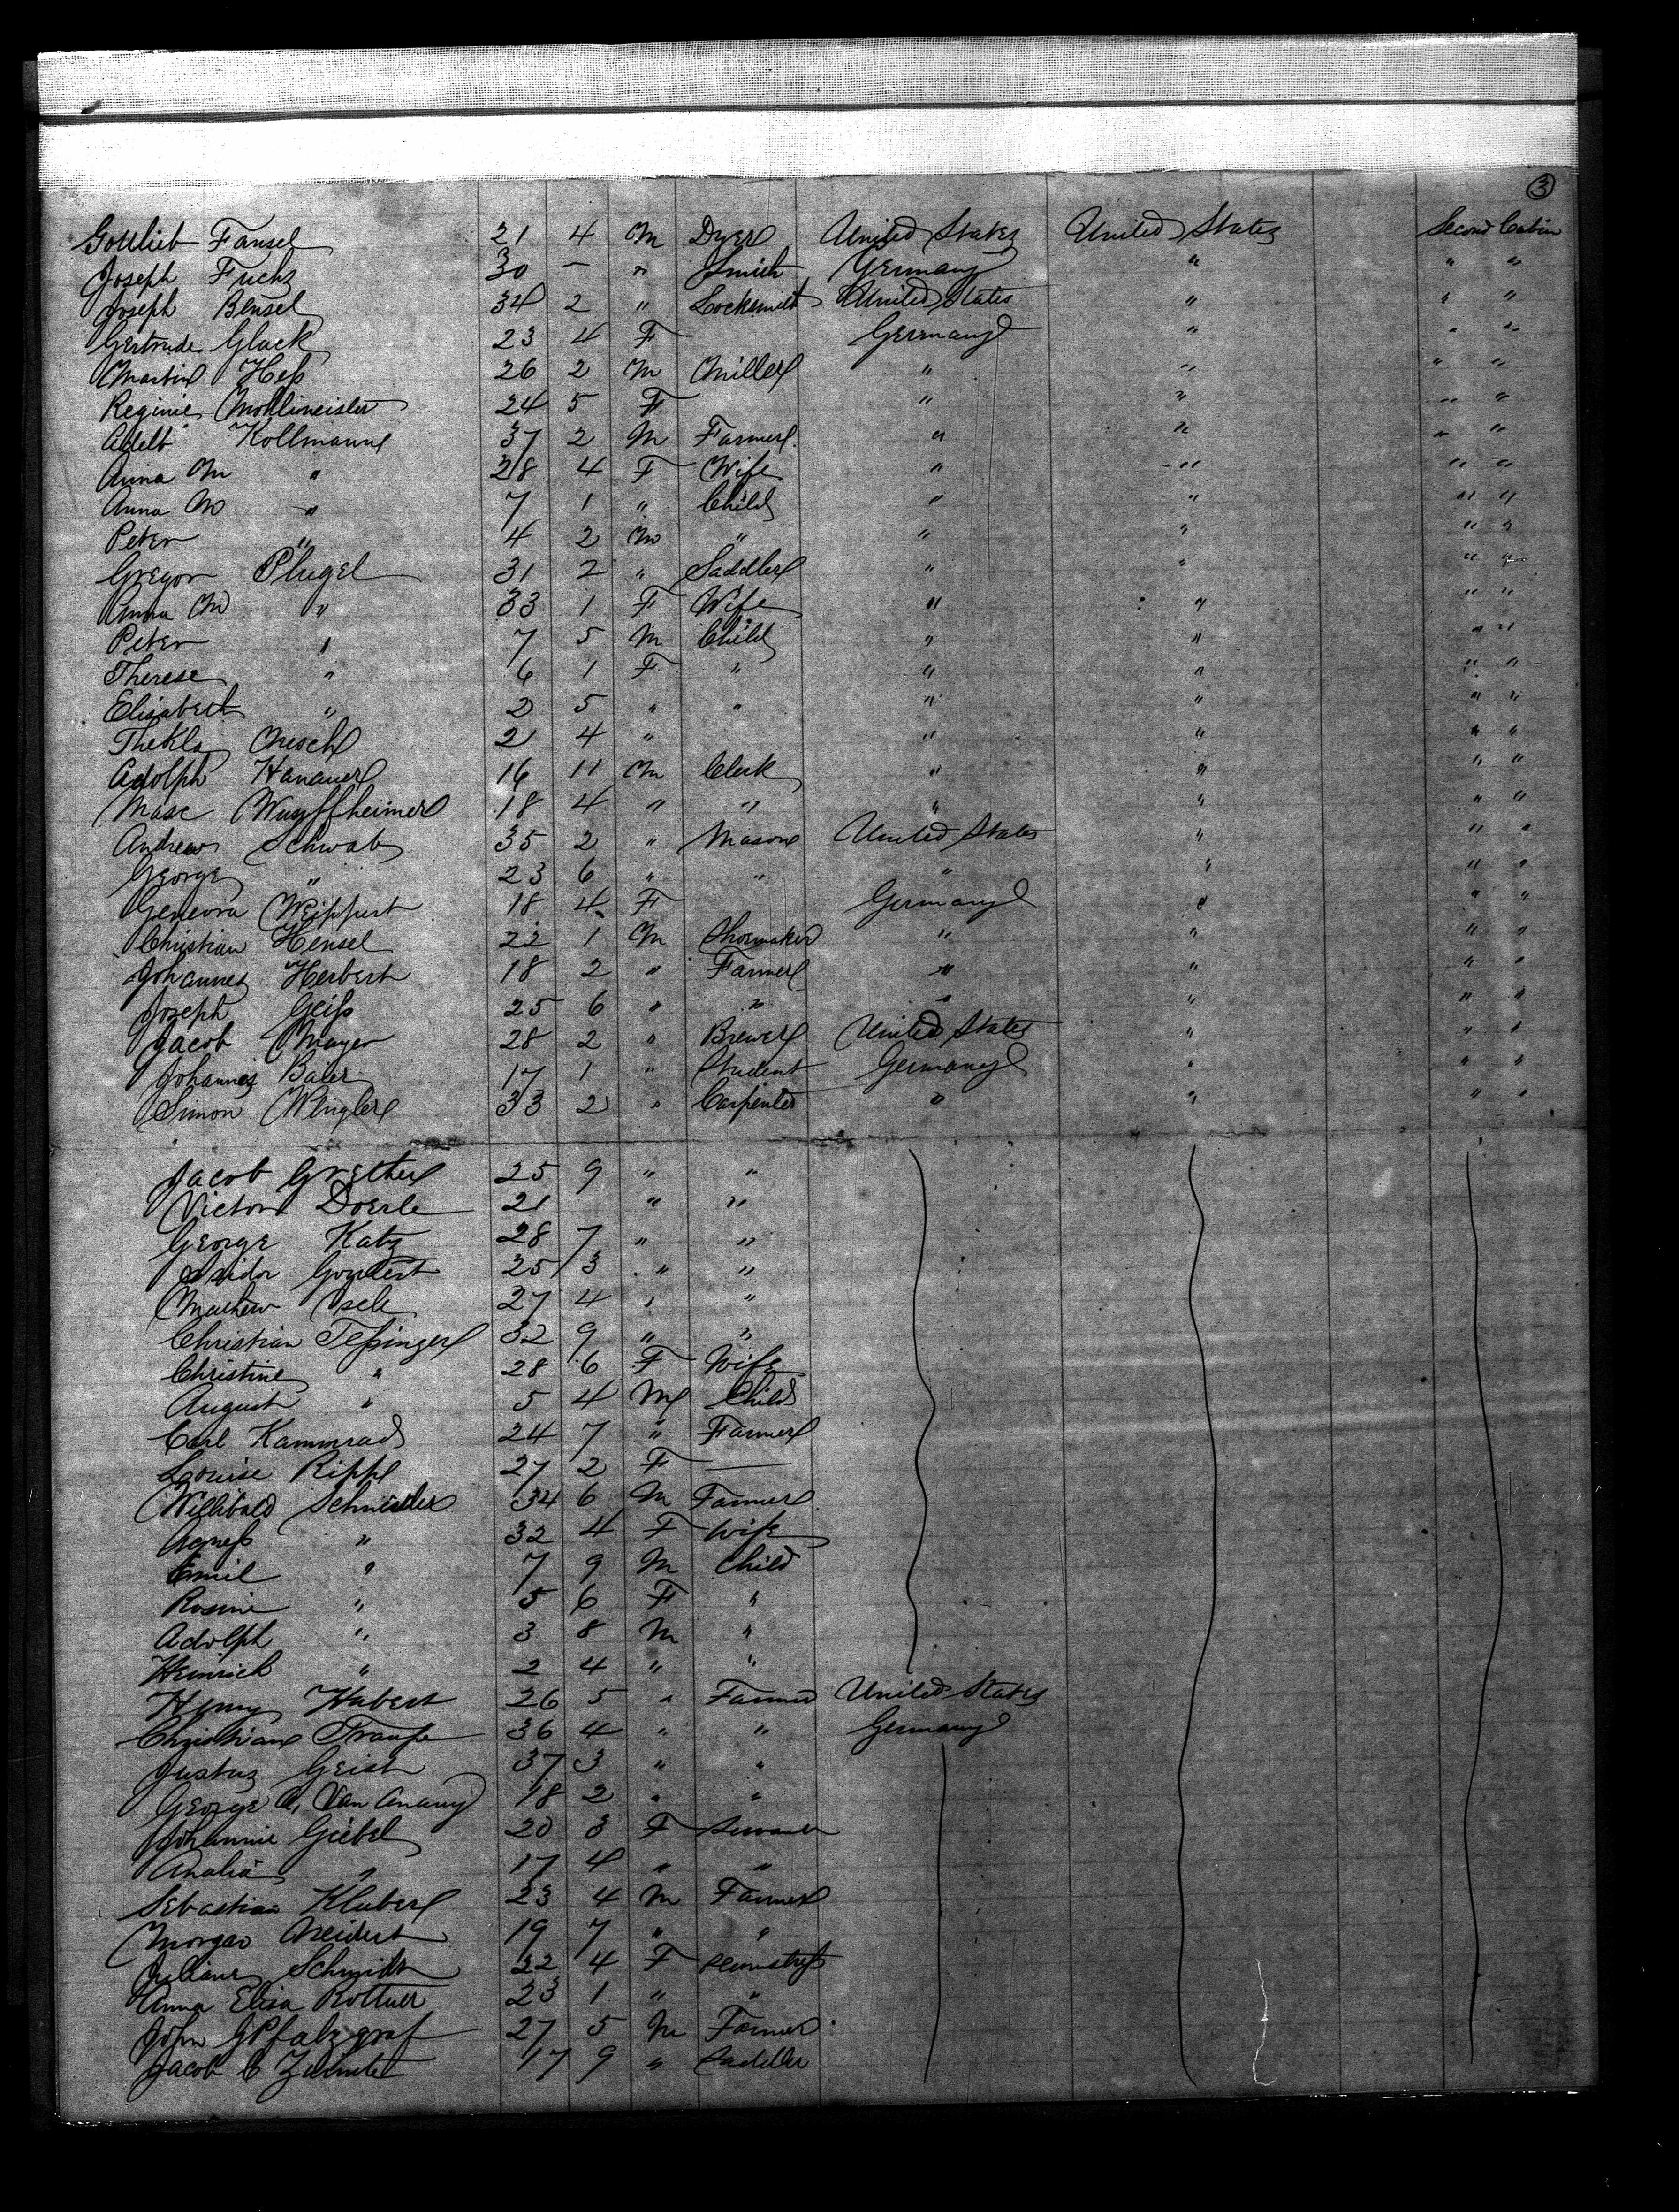 3
Gottlieb Fansel 21 4 M Dyer United States United States Second Cabin
Joseph Fuchs 30 — " Smith Germany " " "
Joseph Bensel 34 2 " Locksmith United States " " "
Gertrude Gluck 23 4 F Germany " " "
Martin Heß 26 2 M Miller " " " "
Reginie 24 5 F " " " "
Adelb Kollmann 37 2 M Farmer " " " "
Anna M " 28 4 F Wife " " " "
Anna M " 7 1 " Child " " " "
Peter " 4 2 M " " " " "
Gregor Plugel 31 2 " Saddler " " " "
Anna M " 33 1 F Wife " " " "
Peter " 7 5 M Child " " " "
Therese " 6 1 F " " " " "
Elisabeth " 2 5 " " " " " "
Thekla 21 4 " " " " "
Adolph Hanauer 16 11 M Clerk " " " "
18 4 " " " " " "
Andrew Schwab 35 2 " Mason United States " " "
George " 23 6 " " " " " "
Weippert 18 4 F Germany " " "
Christian Hensel 22 1 M Shoemaker " " " "
Johannes Herbert 18 2 " Farmer " " " "
Joseph Geiß 25 6 " " " " " "
Jacob Mayer 28 2 " Brewer United States " " "
Johannes Baier 17 1 " Student Germany " " "
Simon 33 2 " Carpenter " " " "
Jacob Grether 25 9 " "
Victor Doerle 21 " "
George Katz 28 7 " "
Isidor 25 3 " "
Mathew 27 4 " "
Christian Teßinger 32 9 " "
Christine " 28 6 F Wife
August " 5 4 M Child
Carl Kammrad 24 7 " Farmer
Louise Rippl 27 2 F —
Willibald Schneider 34 6 M Farmer
Agneß " 32 4 F Wife
Emil " 7 9 M Child
Rosine " 5 6 F "
Adolph " 3 8 M "
Heinrich " 2 4 " "
Henry Hubert 26 5 " Farmer United States
Christian 36 4 " " Germany
Justus Geist 37 3 " "
George 18 2 " "
Johannie Giebel 20 3 F Servant
" 17 4 " "
Sebastian Kluber 23 4 M Farmer
19 7 " "
Schmidt 22 4 F
Anna Elisa Rottner 23 1 " "
John G Pfalzgraf 27 5 M Farmer
Jacob C 17 9 " Sadeller